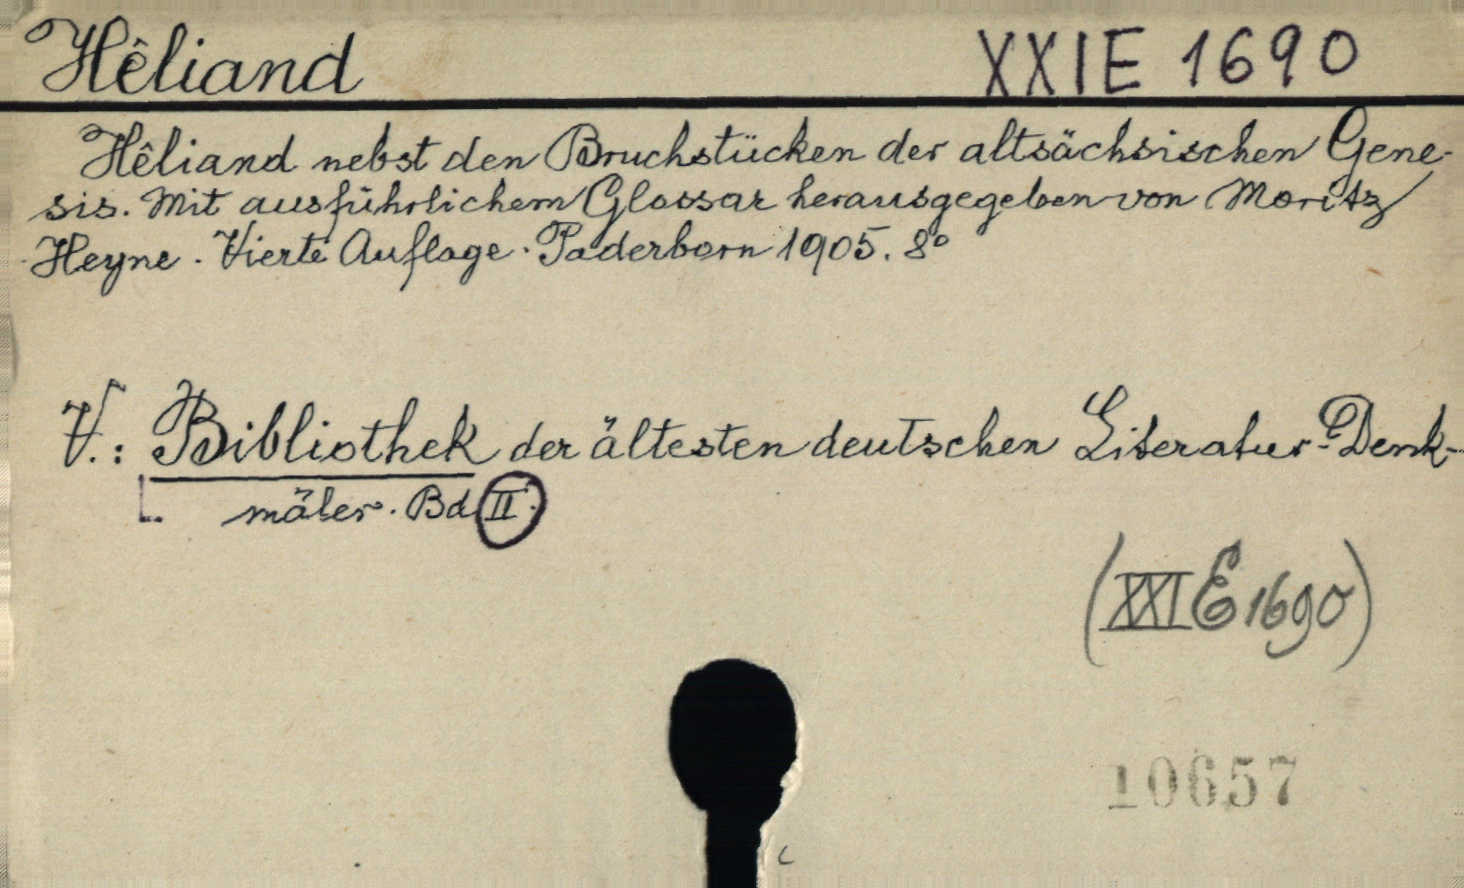 Hêliand XXIE 1690
Hêliand nebst den Bruchstücken der altsächsischen Gene-
sis. Mit ausführlichem Glossar herausgegeben von Moritz
Heyne. Vierte Auflage. Paderborn 1905. 8°
V.: Bibliothek der ältesten deutschen Literatur-Denk-
mäler. Bd II.
(XXI E 1690)
10657